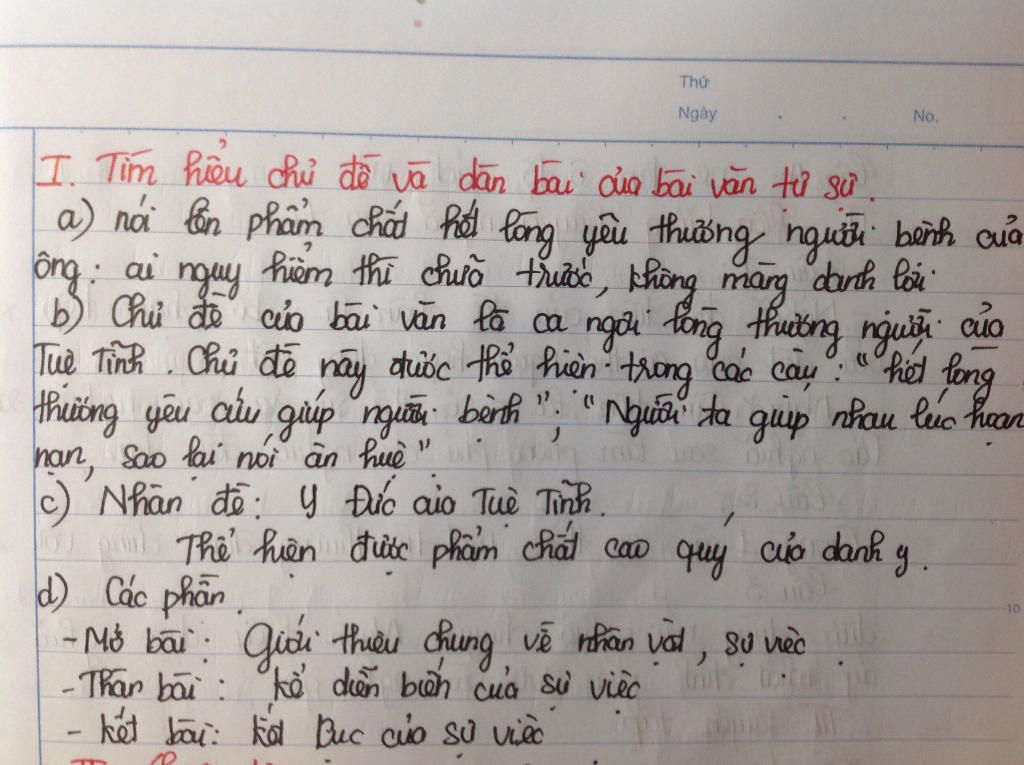 Thứ
Ngày . . No.
I. Tìm hiểu chủ đề và dàn bài của bài văn tự sự.
a) nói lên phẩm chất hết lòng yêu thương người bệnh của
ông: ai nguy hiểm thì chữa trước, không màng danh lợi
b) Chủ đề của bài văn là ca ngợi lòng thương người của
Tuệ Tĩnh. Chủ đề này được thể hiện trong các câu: "hết lòng
thương yêu cứu giúp người bệnh"; "Người ta giúp nhau lúc hoạn
nạn, sao lại nói ân huệ"
c) Nhan đề: Y Đức của Tuệ Tĩnh.
Thể hiện được phẩm chất cao quý của danh y.
d) Các phần.
- Mở bài: Giới thiệu chung về nhân vật, sự việc
- Thân bài: kể diễn biến của sự việc
- kết bài: kết cục của sự việc
10